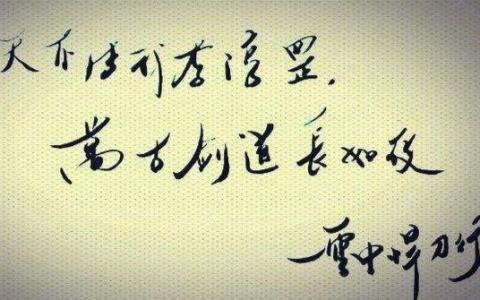 天不生我李淳罡，
萬古剑道長如夜
雪中悍刀行